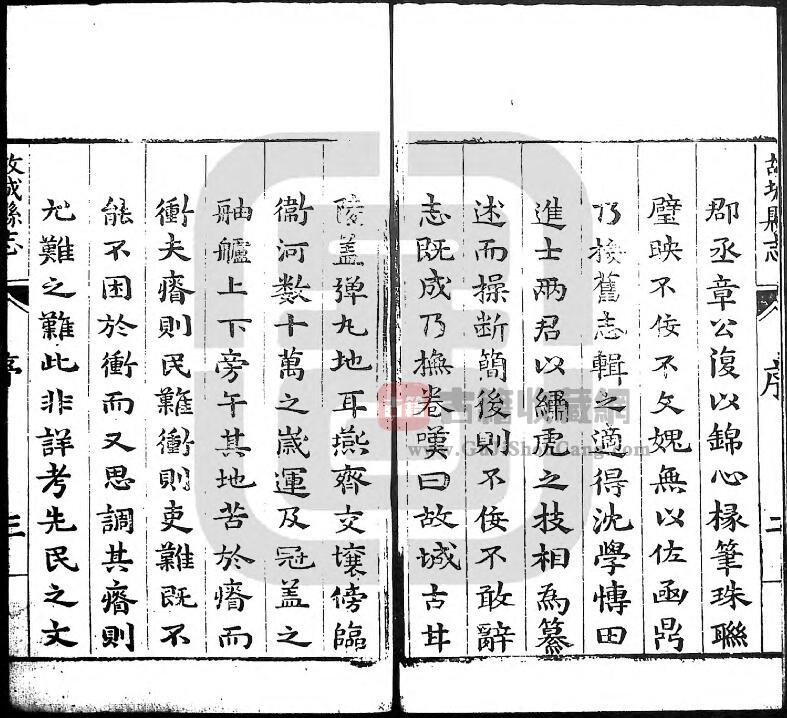 故城縣志
序
二
郡丞章公復以錦心椽筆珠聯
璧映不佞不文媿無以佐函鼎
乃按舊志輯之適得沈學博田
進士兩君以繡虎之技相為纂
述而操斷簡後則不佞不敢辭
志既成乃撫卷嘆曰故城古甘
陵盖弹丸地耳燕齊交壤傍臨
衞河數十萬之嵗運及冠盖之
舳艫上下旁午其地苦於瘠而
衝夫瘠則民難衝則吏難既不
能不困於衝而又思調其瘠則
尤難之難此非詳考先民之文
故城縣志
序
三
古籍
古籍收藏網
www.GuJiShouCang.com